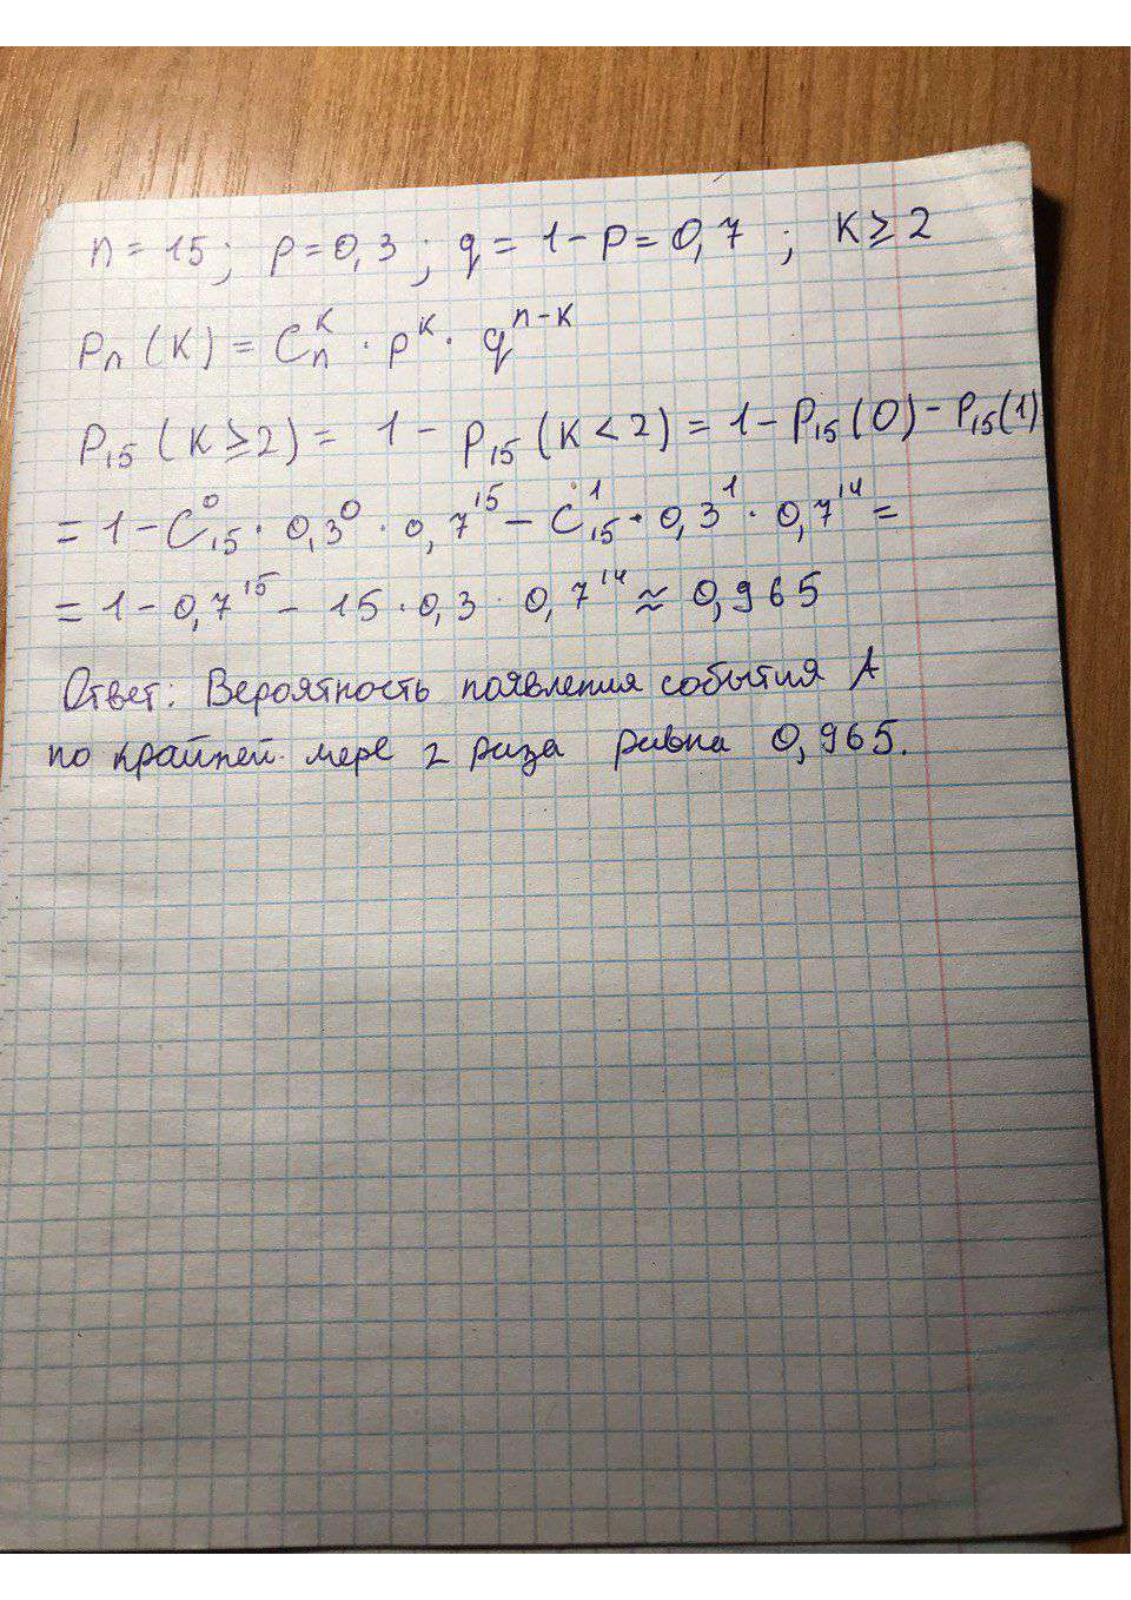 n = 15; p = 0,3; q = 1 - p = 0,7 ; K ≥ 2
Pₙ(K) = Cₙᴷ · pᴷ · qⁿ⁻ᴷ
P₁₅(K ≥ 2) = 1 - P₁₅(K < 2) = 1 - P₁₅(0) - P₁₅(1)
= 1 - C₁₅⁰ · 0,3⁰ · 0,7¹⁵ - C₁₅¹ · 0,3¹ · 0,7¹⁴ =
= 1 - 0,7¹⁵ - 15 · 0,3 · 0,7¹⁴ ≈ 0,965
Ответ: Вероятность появления события A
по крайней мере 2 раза равна 0,965.